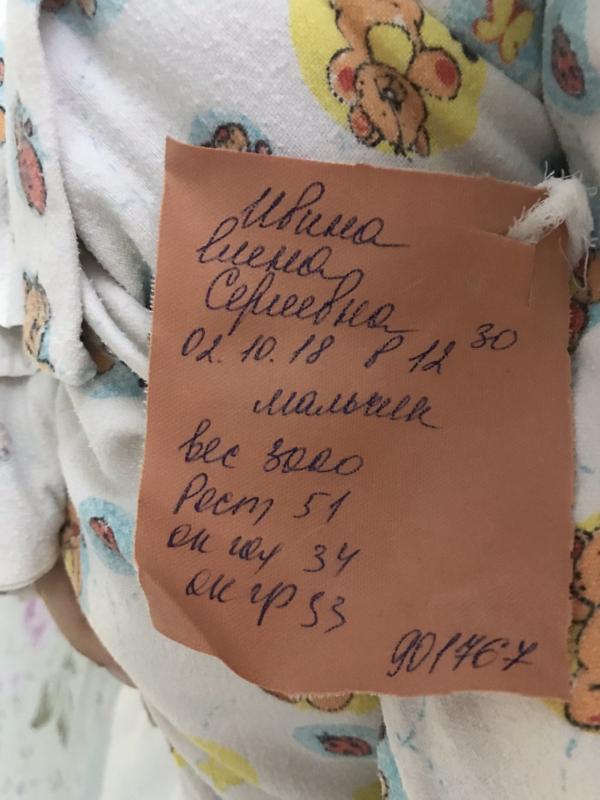 Ивина
Елена
Сергеевна
02.10.18 в 12 30
мальчик
вес 3000
Рост 51
ок гол 34
ок гр 33
901767